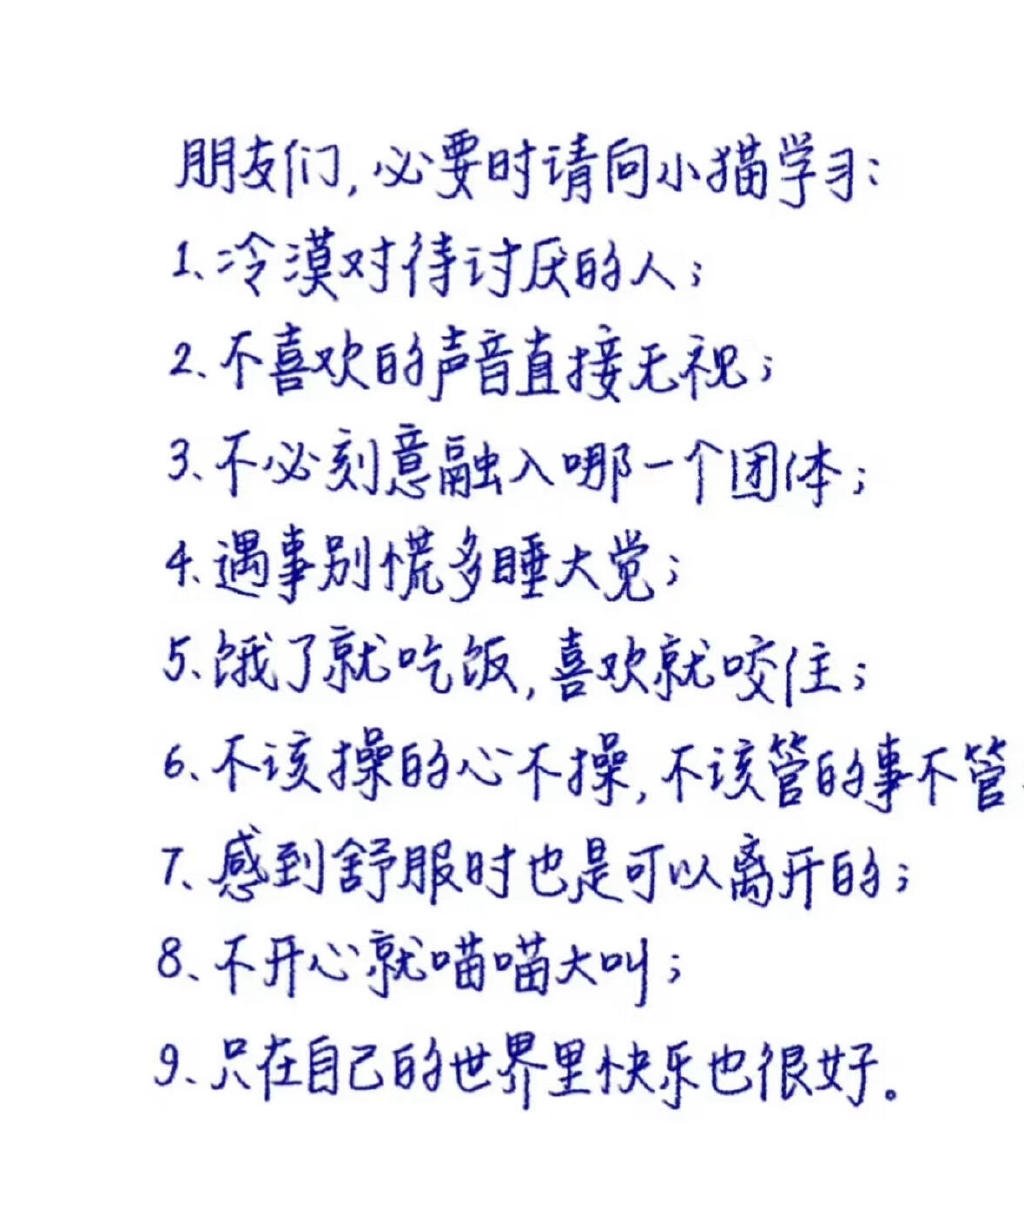 朋友们,必要时请向小猫学习:
1、冷漠对待讨厌的人;
2、不喜欢的声音直接无视;
3、不必刻意融入哪一个团体;
4、遇事别慌多睡大觉;
5、饿了就吃饭,喜欢就咬住;
6、不该操的心不操,不该管的事不管
7、感到舒服时也是可以离开的;
8、不开心就喵喵大叫;
9、只在自己的世界里快乐也很好。